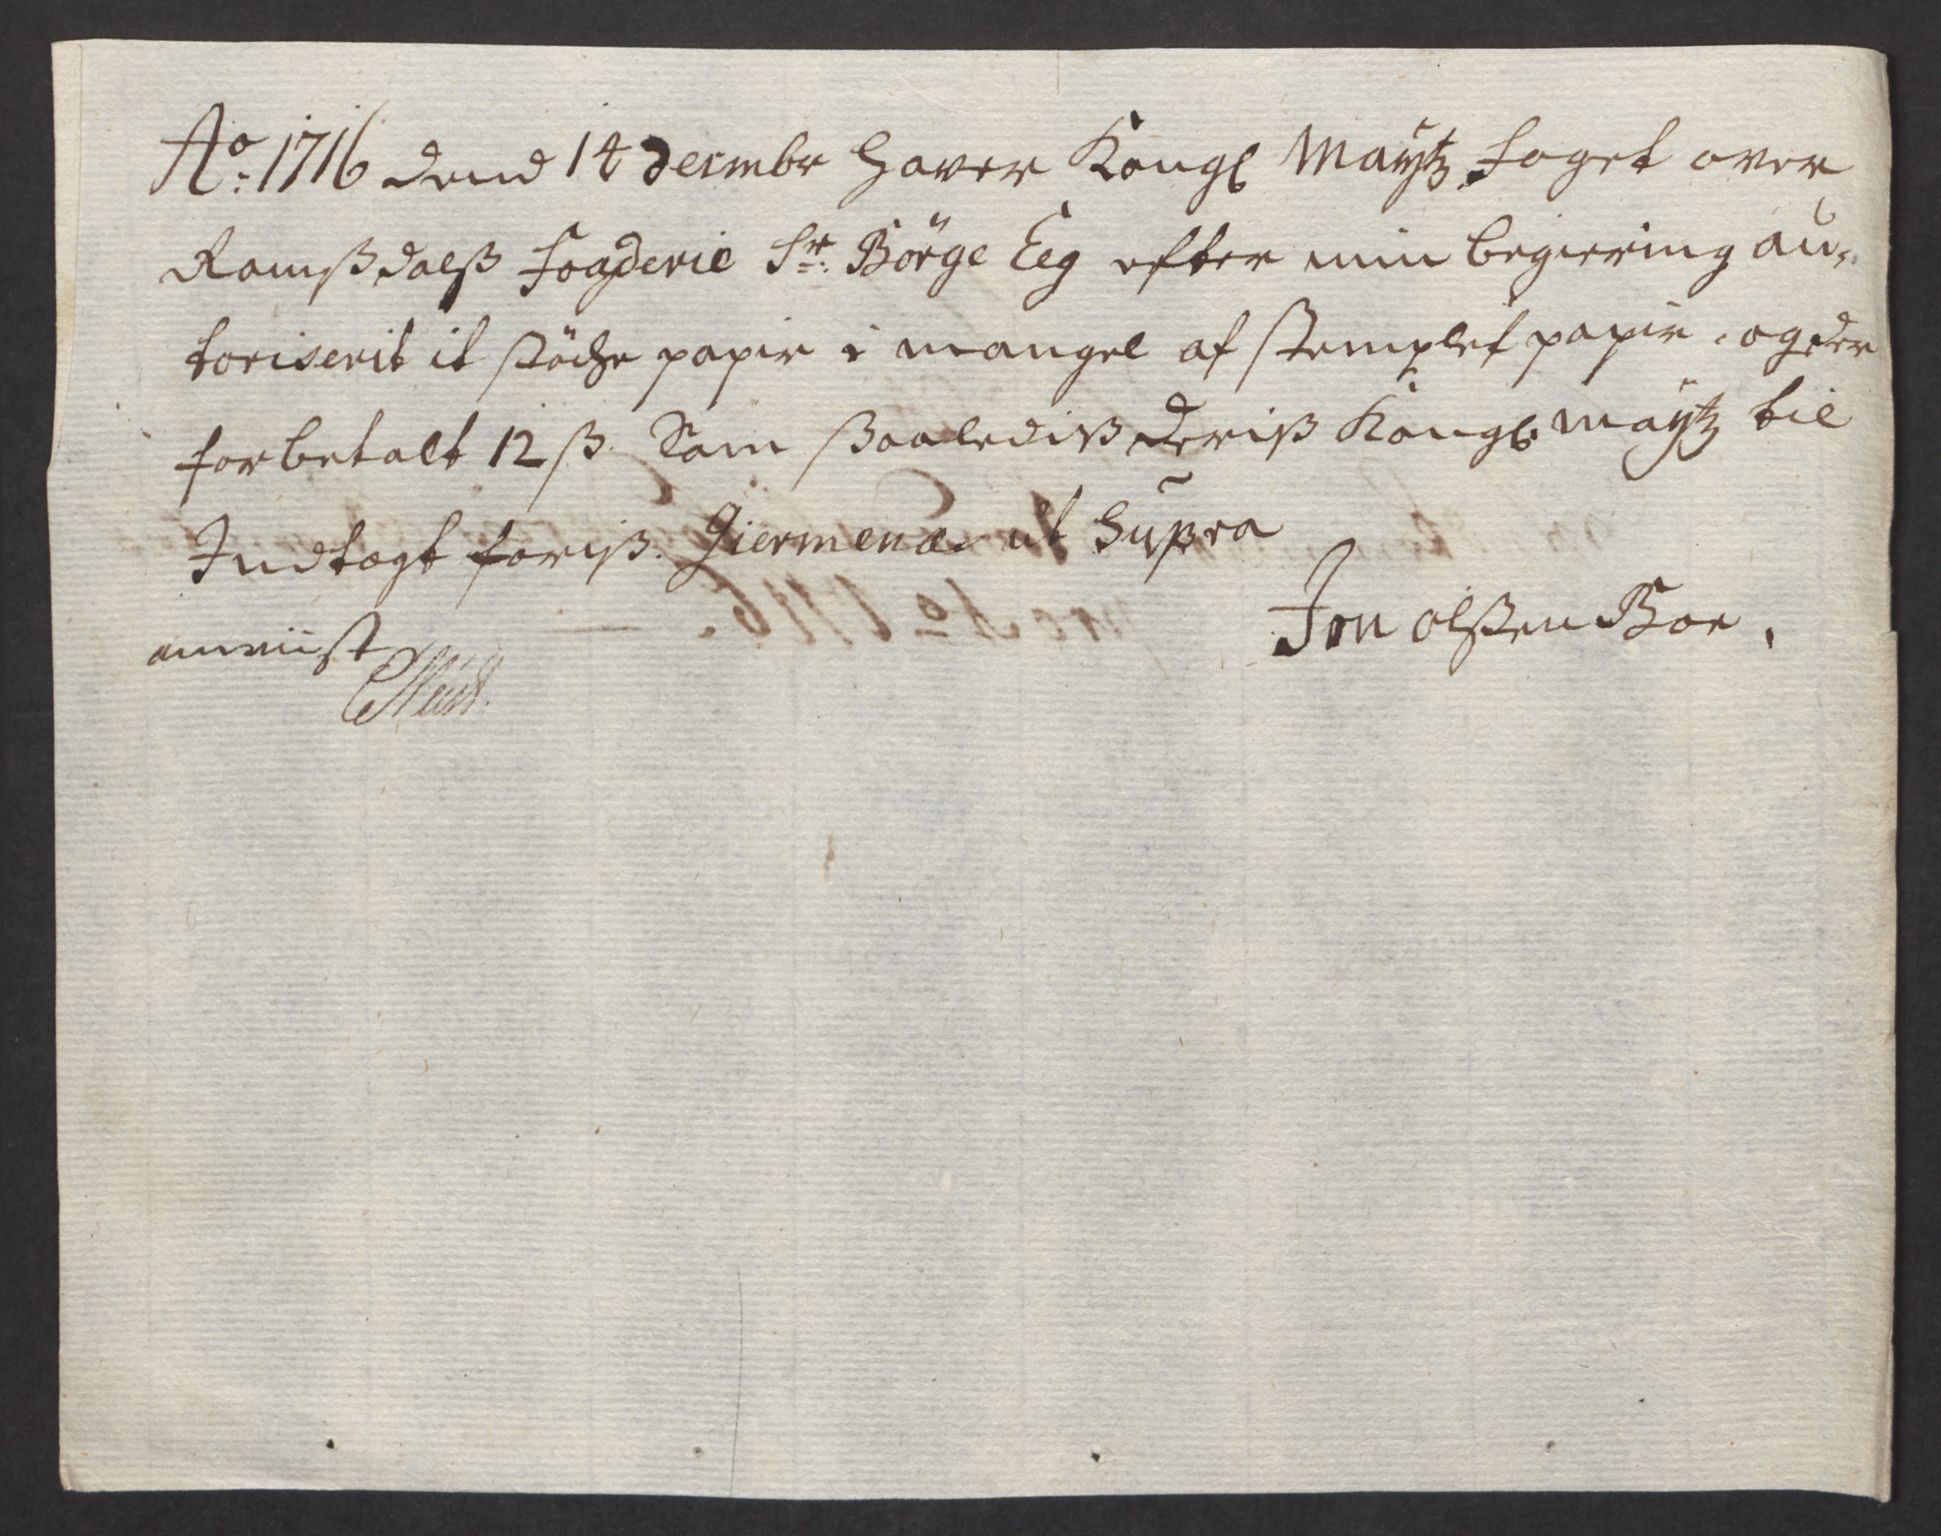 Ao: 1716 dend 14 decembr haver Kongl Maytz foget over
Romßdalß Fogderie Sr: Börge Eeg efter min begiering au-
toriserit it støcke papir i mangel af stemplet papir, og der
for betalt 12 ß. Som ßaalediß deriß Kongl Maytz til
Indtegtføriß. Giermenæs ut Supra
Jon olßen Boe.